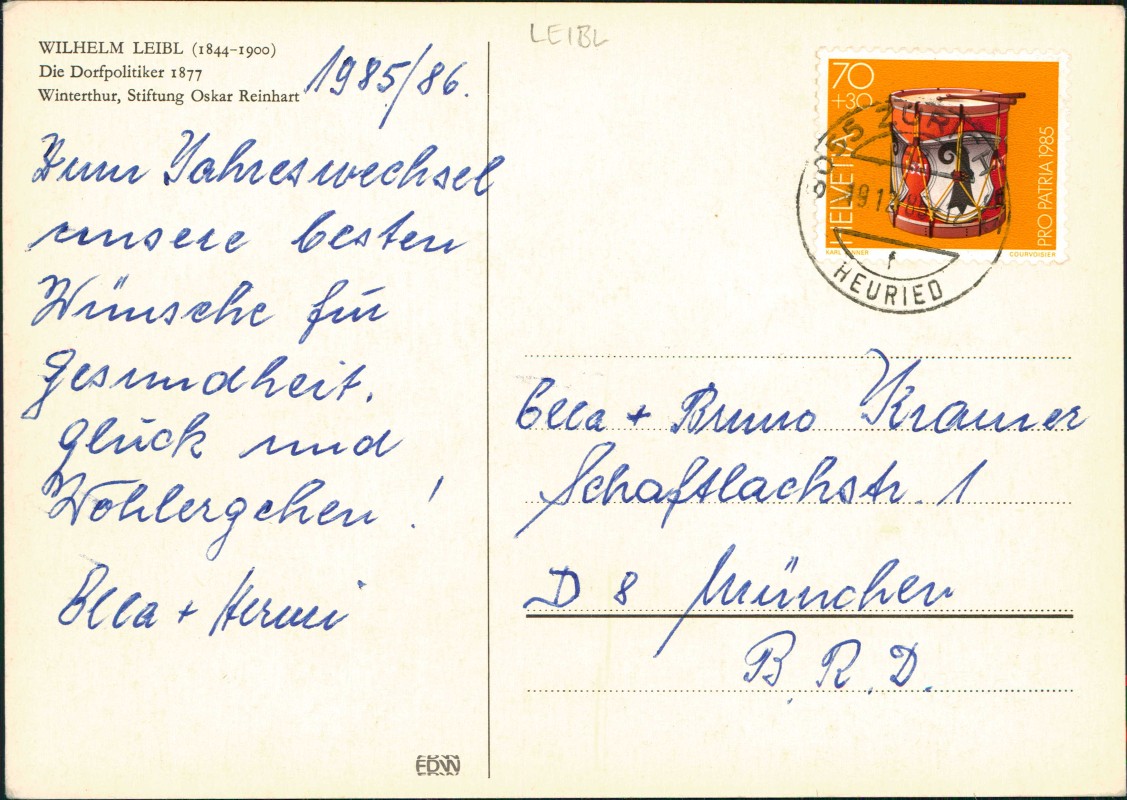 WILHELM LEIBL (1844–1900)
Die Dorfpolitiker 1877
Winterthur, Stiftung Oskar Reinhart
1985/86.
Zum Jahreswechsel
unsere besten
Wünsche für
Gesundheit,
Glück und
Wohlergehen!
Ella + Hermi
EDW
LEIBL
70
+30
HELVETIA
PRO PATRIA 1985
COURVOISIER
8055 ZÜRICH
19.12.85
HEURIED
Ella + Bruno Kramer
Schaftlachstr. 1
D 8 München
B.R.D.